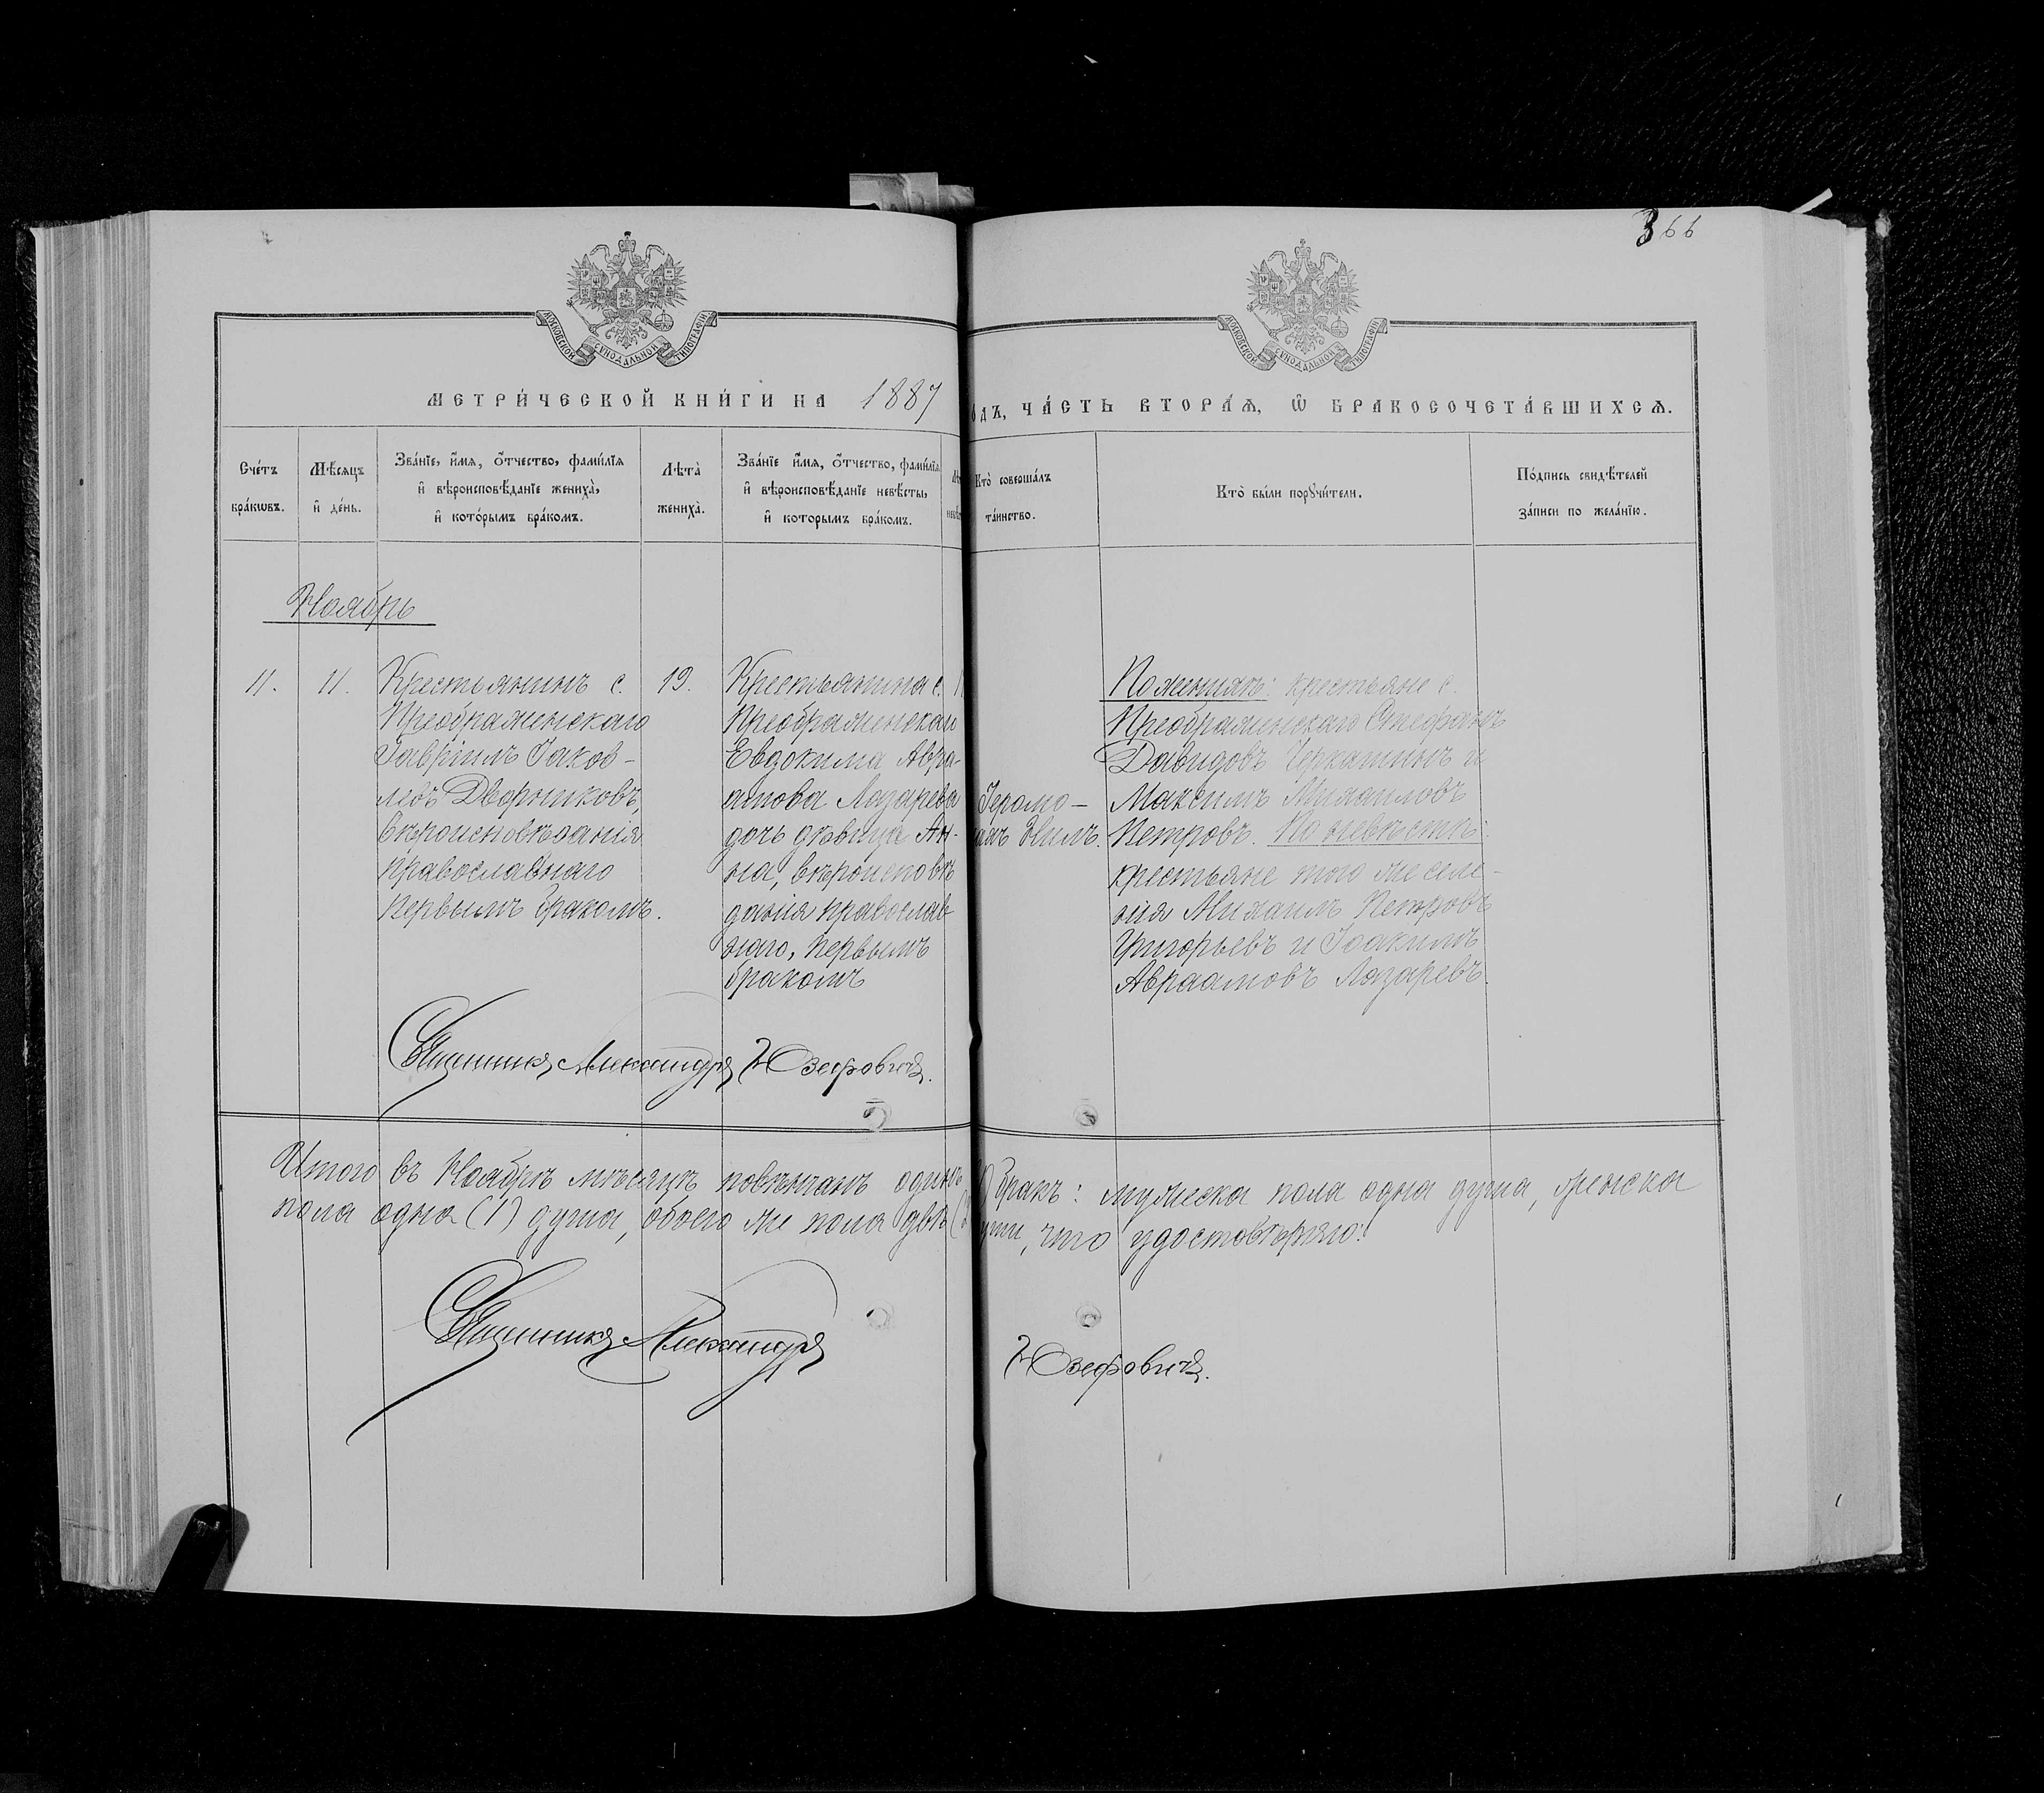 366
МОСКОВСКОЙ СѴНОДАЛЬНОЙ ТИПОГРАФІИ
МОСКОВСКОЙ СѴНОДАЛЬНОЙ ТИПОГРАФІИ
МЕТРИ́ЧЕСКОЙ КНИ́ГИ НА 1887
ОДЪ, ЧА́СТЬ ВТОРА́Ѧ, Ѿ БРАКОСОЧЕТА́ВШИХСѦ.
Сче́тъ бра́кѡвъ.
Мѣ́сяцъ и҆ де́нь.
Зва́нїе, и҆́мѧ, ѻ҆́тчество, фами́лїѧ и҆ вѣроисповѣ́данїе жениха̀, и҆ кото́рымъ бра́комъ.
Лѣта̀ жениха̀.
Зва́нїе и҆́мѧ, ѻ҆́тчество, фами́лїѧ и҆ вѣроисповѣ́данїе невѣ́сты, и҆ которымъ бра́комъ.
Кто̀ соверша́лъ та́инство.
Кто̀ бы́ли порꙋчи́тели.
По́дпись свидѣ́телей за́писи по жела́нїю.
Ноябрь
11.
11.
Крестьянинъ с.
Преображенскаго
Гавріилъ Іаков-
левъ Дворниковъ,
вѣроисповѣданія
православнаго
первымъ бракомъ.
19.
Крестьянина с.
Преображенскаго
Евдокима Авра-
амова Лазарева
дочь дѣвица Ан-
на, вѣроисповѣ
данія православ
наго, первымъ
бракомъ
Іеромо-
нахъ Нилъ.
По женихѣ: крестьяне с.
Преображенскаго Стефанъ
Давидовъ Черкашинъ и
Максимъ Михаиловъ
Петровъ. По невѣстѣ:
крестьяне того же селе-
нія Михаилъ Петровъ
Григорьевъ и Іоакимъ
Авраамовъ Лазаревъ.
Священникъ Александръ Юзефовичъ.
Итого въ Ноябрѣ мѣсяцѣ повѣнчанъ одинъ бракъ: мужеска пола одна душа, женска
пола одна (1) душа, обоего же пола двѣ (2 уши, что удостовѣряю:
Священникъ Александръ Юзефовичъ.